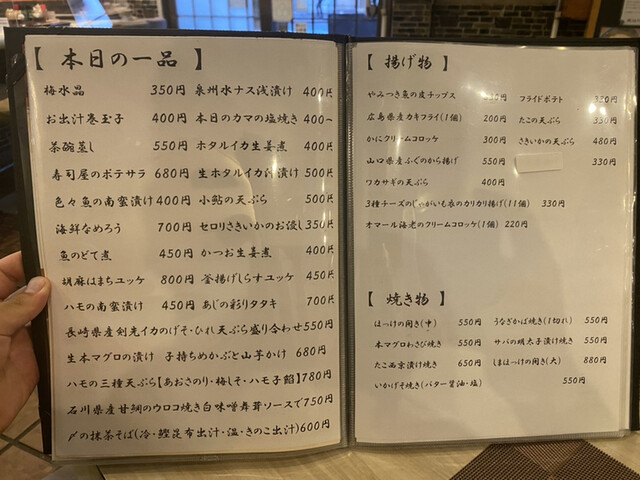 【 本日の一品 】
梅水晶 350円 泉州水ナス浅漬け 400円
お出汁巻玉子 400円 本日のカマの塩焼き 400〜
茶碗蒸し 550円 ホタルイカ生姜煮 400円
寿司屋のポテサラ 680円 生ホタルイカ沖漬け 500円
色々魚の南蛮漬け 400円 小鮎の天ぷら 500円
海鮮なめろう 700円 セロリさきいかのお浸し 350円
魚のどて煮 450円 かつお生姜煮 400円
胡麻はまちユッケ 800円 釜揚げしらすユッケ 450円
ハモの南蛮漬け 450円 あじの彩りタタキ 700円
長崎県産剣先イカのげそ・ひれ天ぷら盛り合わせ 550円
生本マグロの漬け 子持ちめかぶと山芋かけ 680円
ハモの三種天ぷら【あおさのり・梅しそ・ハモ子餡】780円
石川県産甘鯛のウロコ焼き白味噌舞茸ソースで 750円
〆の抹茶そば(冷・鰹昆布出汁・温・きのこ出汁)600円
【 揚げ物 】
やみつき魚の皮チップス 円 フライドポテト 330円
広島県産カキフライ(1個) 200円 たこの天ぷら 330円
かにクリームコロッケ 300円 さきいかの天ぷら 480円
山口県産ふぐのから揚げ 550円 330円
ワカサギの天ぷら 400円
3種チーズのじゃがいも衣のカリカリ揚げ(11個) 330円
オマール海老のクリームコロッケ(1個) 220円
【 焼き物 】
ほっけの開き(中) 550円 うなぎかば焼き(1切れ) 550円
本マグロわさび焼き 550円 サバの明太子漬け焼き 550円
たこ西京漬け焼き 650円 しまほっけの開き(大) 880円
いかげそ焼き(バター醤油・塩) 550円